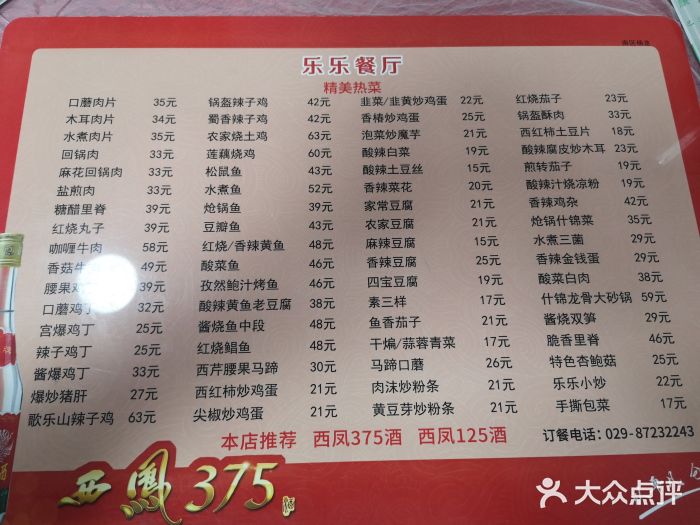 乐乐餐厅
精美热菜
口蘑肉片 35元
木耳肉片 34元
水煮肉片 35元
回锅肉 33元
麻花回锅肉 33元
盐煎肉 33元
糖醋里脊 39元
红烧丸子 39元
咖喱牛肉 58元
香菇牛 49元
腰果鸡 39元
口蘑鸡丁 32元
宫爆鸡丁 25元
辣子鸡丁 25元
酱爆鸡丁 33元
爆炒猪肝 27元
歌乐山辣子鸡 63元
锅盔辣子鸡 42元
蜀香辣子鸡 42元
农家烧土鸡 63元
莲藕烧鸡 60元
松鼠鱼 43元
水煮鱼 52元
炝锅鱼 39元
豆瓣鱼 43元
红烧/香辣黄鱼 48元
酸菜鱼 46元
孜然鲍汁烤鱼 46元
酸辣黄鱼老豆腐 38元
酱烧鱼中段 48元
红烧鲳鱼 48元
西芹腰果马蹄 30元
西红柿炒鸡蛋 21元
尖椒炒鸡蛋 21元
韭菜/韭黄炒鸡蛋 22元
香椿炒鸡蛋 25元
泡菜炒魔芋 21元
酸辣白菜 19元
酸辣土豆丝 19元
香辣菜花 20元
家常豆腐 21元
农家豆腐 21元
麻辣豆腐 21元
香辣豆腐 25元
四宝豆腐 21元
素三样 17元
鱼香茄子 21元
干煸/蒜蓉青菜 17元
马蹄口蘑 26元
肉沫炒粉条 21元
黄豆芽炒粉条 21元
红烧茄子 23元
锅盔酥肉 33元
西红柿土豆片 18元
酸辣腐皮炒木耳 23元
煎转茄子 19元
酸辣汁烧凉粉 19元
香辣鸡杂 42元
炝锅什锦菜 35元
水煮三菌 29元
香辣金钱蛋 29元
酸菜白肉 38元
什锦龙骨大砂锅 59元
酱烧双笋 29元
脆香里脊 46元
特色杏鲍菇 25元
乐乐小炒 22元
手撕包菜 17元
本店推荐 西凤375酒 西凤125酒 订餐电话：029-87232243
西凤375
酒
大众点评